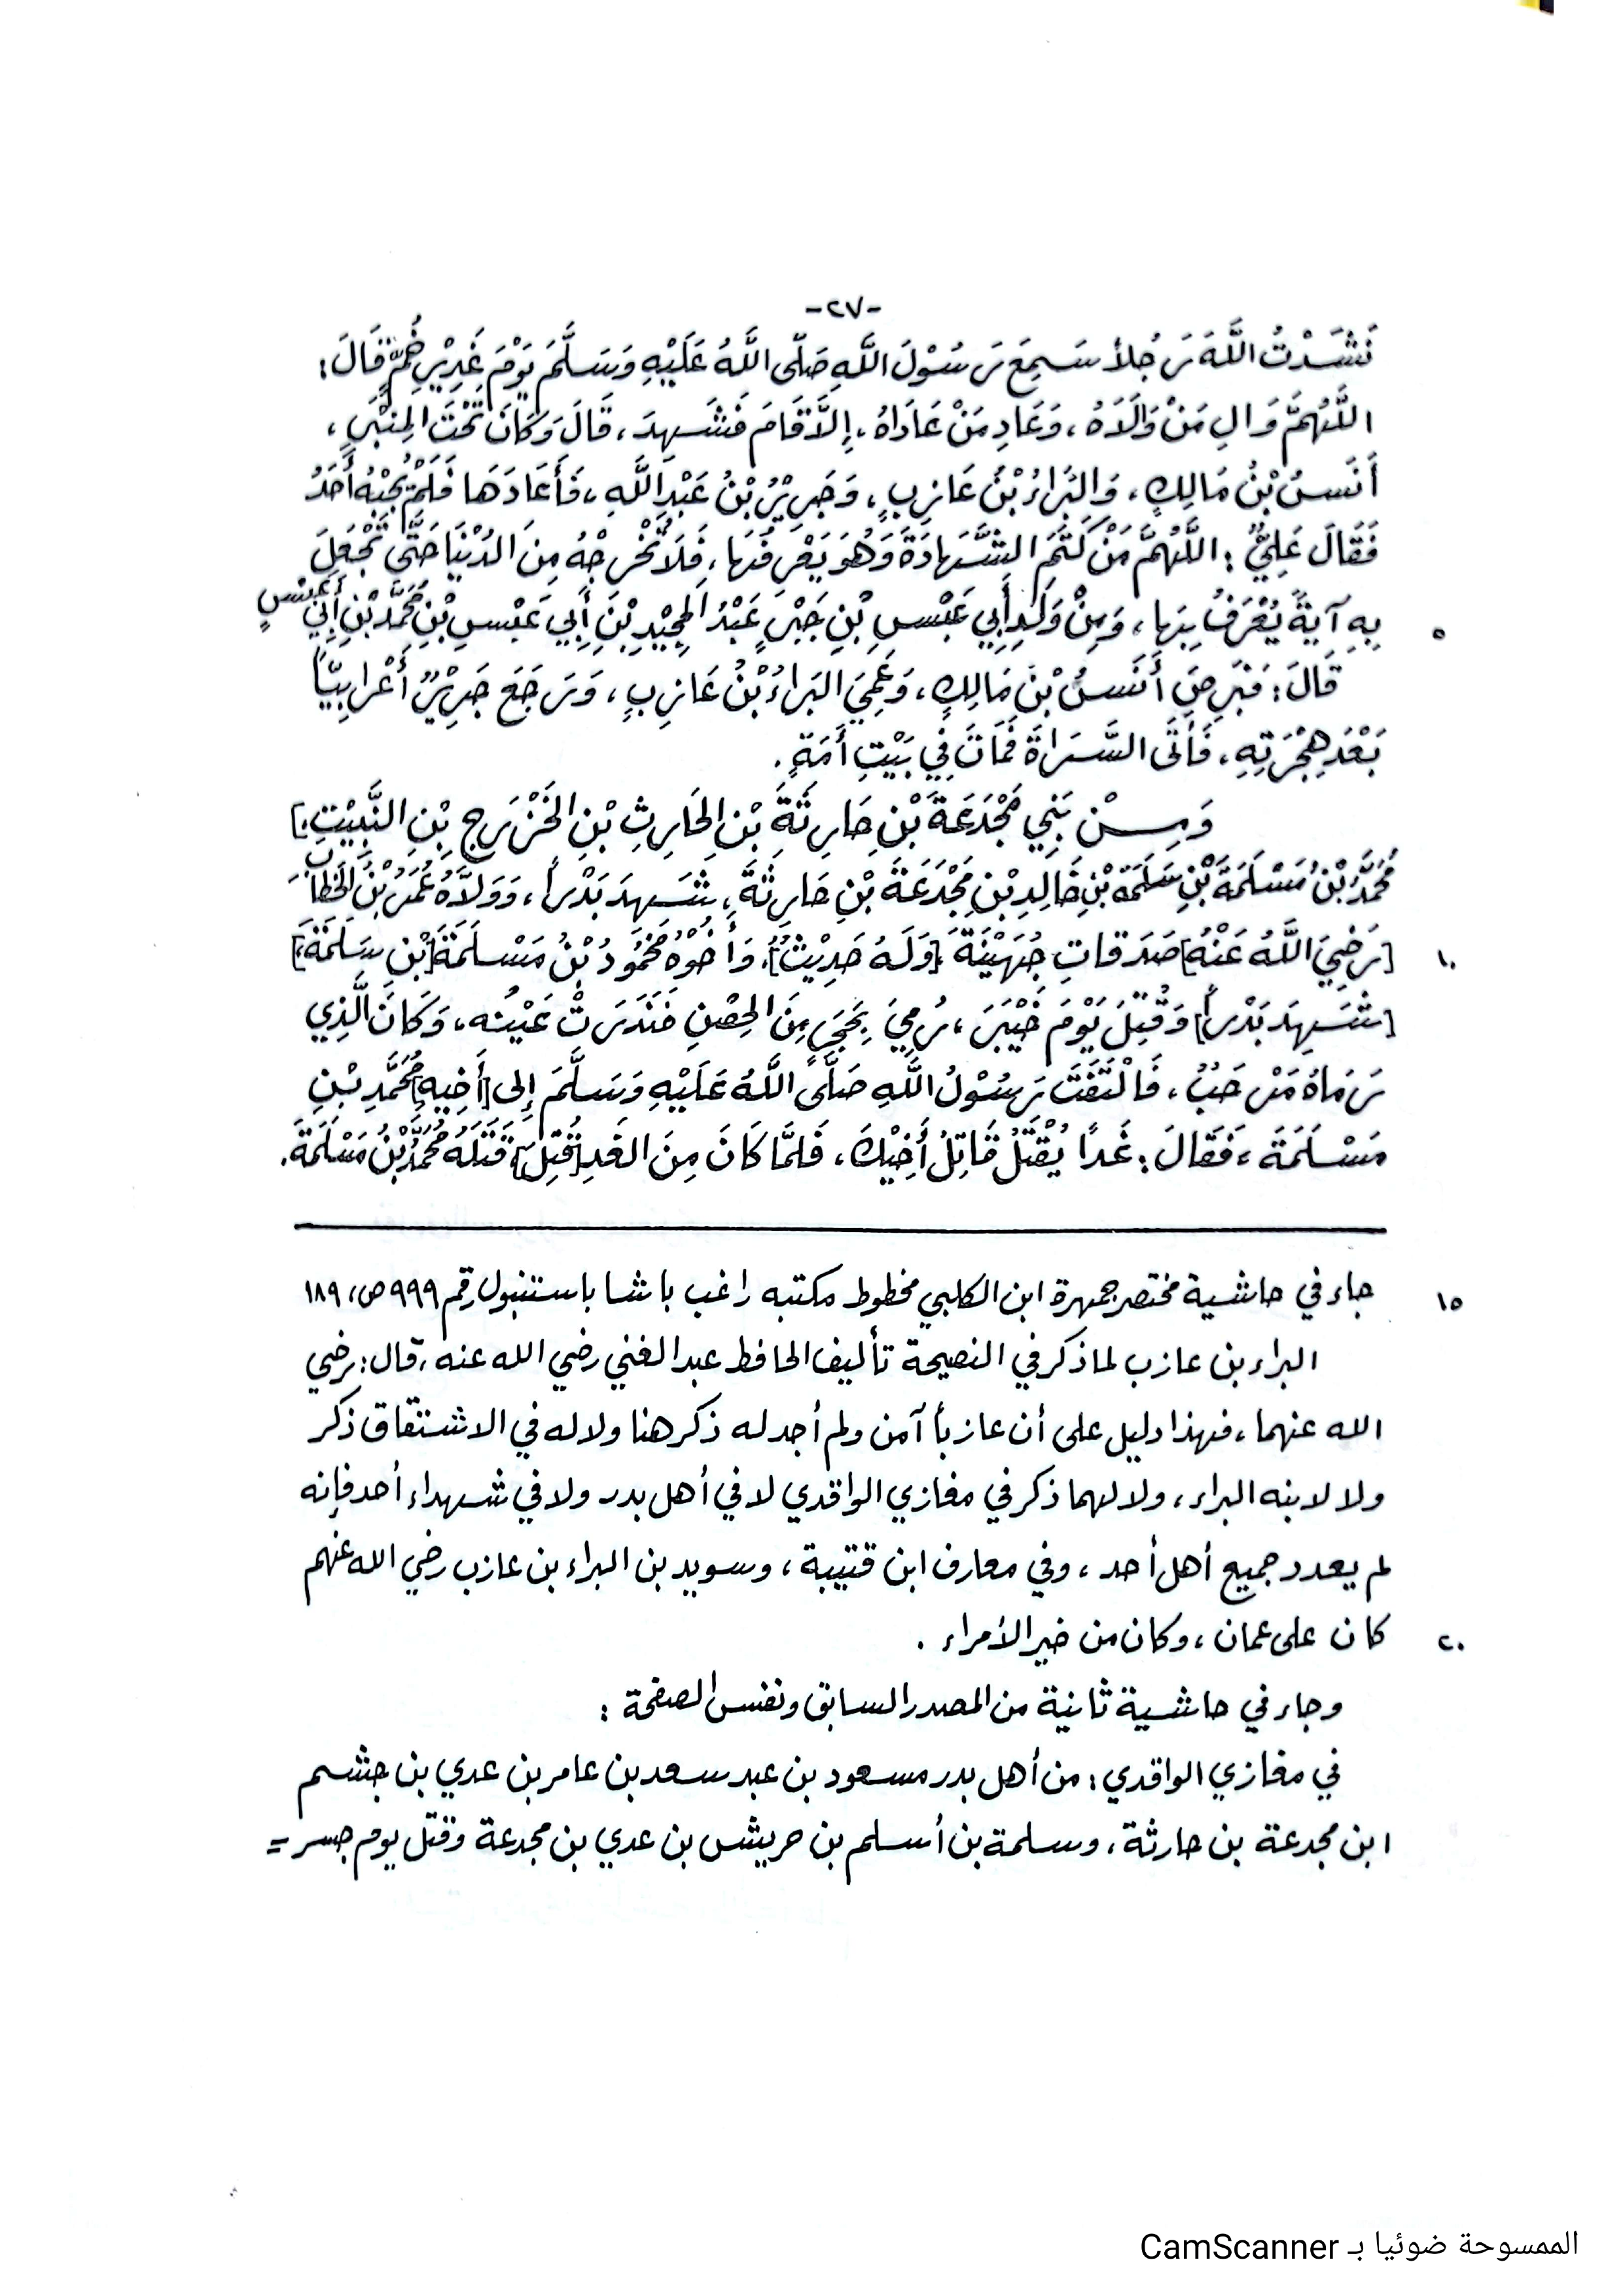 -٢٧-
نَشَدْتُ اللَّهَ رَجُلاً سَمِعَ رَسُوْلَ اللَّهِ صَلَّى اللَّهُ عَلَيْهِ وَسَلَّمَ يَوْمَ غَدِيْرِ خُمٍّ قَالَ:
اللَّهُمَّ وَالِ مَنْ وَالَاهُ، وَعَادِ مَنْ عَادَاهُ، إِلَّا قَامَ فَشَهِدَ، قَالَ وَكَانَ تَحْتَ المِنْبَرِ،
أَنَسُ بْنُ مَالِكٍ، وَالبَرَاءُ بْنُ عَازِبٍ، وَجَرِيْرُ بْنُ عَبْدِ اللَّهِ، فَأَعَادَهَا فَلَمْ يُجِبْهُ أَحَدٌ
فَقَالَ عَلِيٌّ: اللَّهُمَّ مَنْ كَتَمَ الشَّهَادَةَ وَهُوَ يَعْرِفُهَا، فَلَا تُخْرِجْهُ مِنَ الدُنْيَا حَتَّى تَجْعَلَ
بِهِ آيَةً يُعْرَفُ بِهَا، وَمِنْ وَلَدِ أَبِي عَبْسِ بْنِ جَبْرٍ عَبْدُ المَجِيْدِ بْنِ أَبِي عَبْسِ بْنِ مُحَمَّدِ بْنِ أَبِي عَبْسٍ
٥
قَالَ: فَبَرِصَ أَنَسُ بْنُ مَالِكٍ، وَعَمِيَ البَرَاءُ بْنُ عَازِبٍ، وَرَجَعَ جَرِيْرٌ أَعْرَابِيّاً
بَعْدَ هِجْرَتِهِ، فَأَتَى السَّرَاةَ فَمَاتَ فِي بَيْتِ أَمَةٍ.
وَمِنْ بَنِي مَجْدَعَةَ بْنِ حَارِثَةَ بْنِ الحَارِثِ بْنِ الخَزْرَجِ بْنِ النَّبِيْتِ]
مُحَمَّدُ بْنُ مَسْلَمَةَ بْنِ سَلَمَةَ بْنِ خَالِدِ بْنِ مَجْدَعَةَ بْنِ حَارِثَةَ، شَهِدَ بَدْراً، وَوَلَّاهُ عُمَرُ بْنُ الخَطَّابِ
[رَضِيَ اللَّهُ عَنْهُ] صَدَقاتِ جُهَيْنَةَ [وَلَهُ حَدِيْثٌ]، وَأَخُوْهُ مَحْمُودُ بْنُ مَسْلَمَةَ [بْنِ سَلَمَةَ]
١٠
[شَهِدَ بَدْراً] وَقُتِلَ يَوْمَ خَيْبَرَ، رُمِيَ بِحَجَرٍ مِنَ الحِصْنِ فَنَدَرَتْ عَيْنُه، وَكَانَ الَّذِي
رَمَاهُ مَرْحَبٌ، فَالْتَفَتَ رَسُوْلُ اللَّهِ صَلَّى اللَّهُ عَلَيْهِ وَسَلَّمَ إِلى [أَخِيهِ] مُحَمَّدِ بْنِ
مَسْلَمَةَ، فَقَالَ: غَداً يُقْتَلُ قَاتِلُ أَخِيْكَ، فَلَمَّا كَانَ مِنَ الغَدِ [قُتِلَ] قَتَلَهُ مُحَمَّدُ بْنُ مَسْلَمَةَ.
جاء في حاشية مختصر جمهرة ابن الكلبي مخطوط مكتبه راغب باشا باستنبول رقم ٩٩٩ ص، ١٨٩
١٥
البراء بن عازب لما ذكر في النصيحة تأليف الحافظ عبد الغني رضي الله عنه، قال: رضي
الله عنهما، فهذا دليل على أن عازباً آمن ولم أجد له ذكر هنا ولا له في الاشتقاق ذكر
ولا لابنه البراء، ولا لهما ذكر في مغازي الواقدي لا في أهل بدر ولا في شهداء أحد فإنه
لم يعدد جميع أهل أحد، وفي معارف ابن قتيبة، وسويد بن البراء بن عازب رضي الله عنهم
كان على عمان، وكان من خير الأمراء.
٢٠
وجاء في حاشية ثانية من المصدر السابق ونفس الصفحة:
في مغازي الواقدي: من أهل بدر مسعود بن عبد سعد بن عامر بن عدي بن جشم
ابن مجدعة بن حارثة، وسلمة بن أسلم بن حريش بن عدي بن مجدعة وقتل يوم جسر =
الممسوحة ضوئيا بـ CamScanner